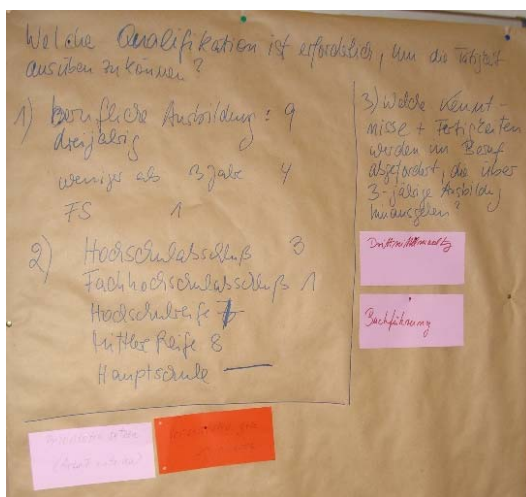 Welche Qualifikation ist erforderlich, um die Tätigkeit
ausüben zu können?
1) Berufliche Ausbildung: 9
dreijährig
weniger als 3 Jahre 4
FS 1
2) Hochschulabschluß 3
Fachhochschulabschluß 1
Hochschulreife
Mittlere Reife 8
Hauptschule —
3) Welche Kennt-
nisse + Fertigkeiten
werden im Beruf
abgefordert, die über
3-jährige Ausbildg
hinausgehen?
Drittmittel
Buchführung